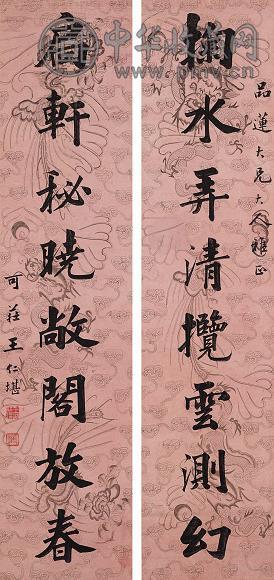 中华收藏网
品蓮大兄大人雅正
掬水弄清攬雲測幻
扃軒秘曉敞閣放春
可莊王仁堪